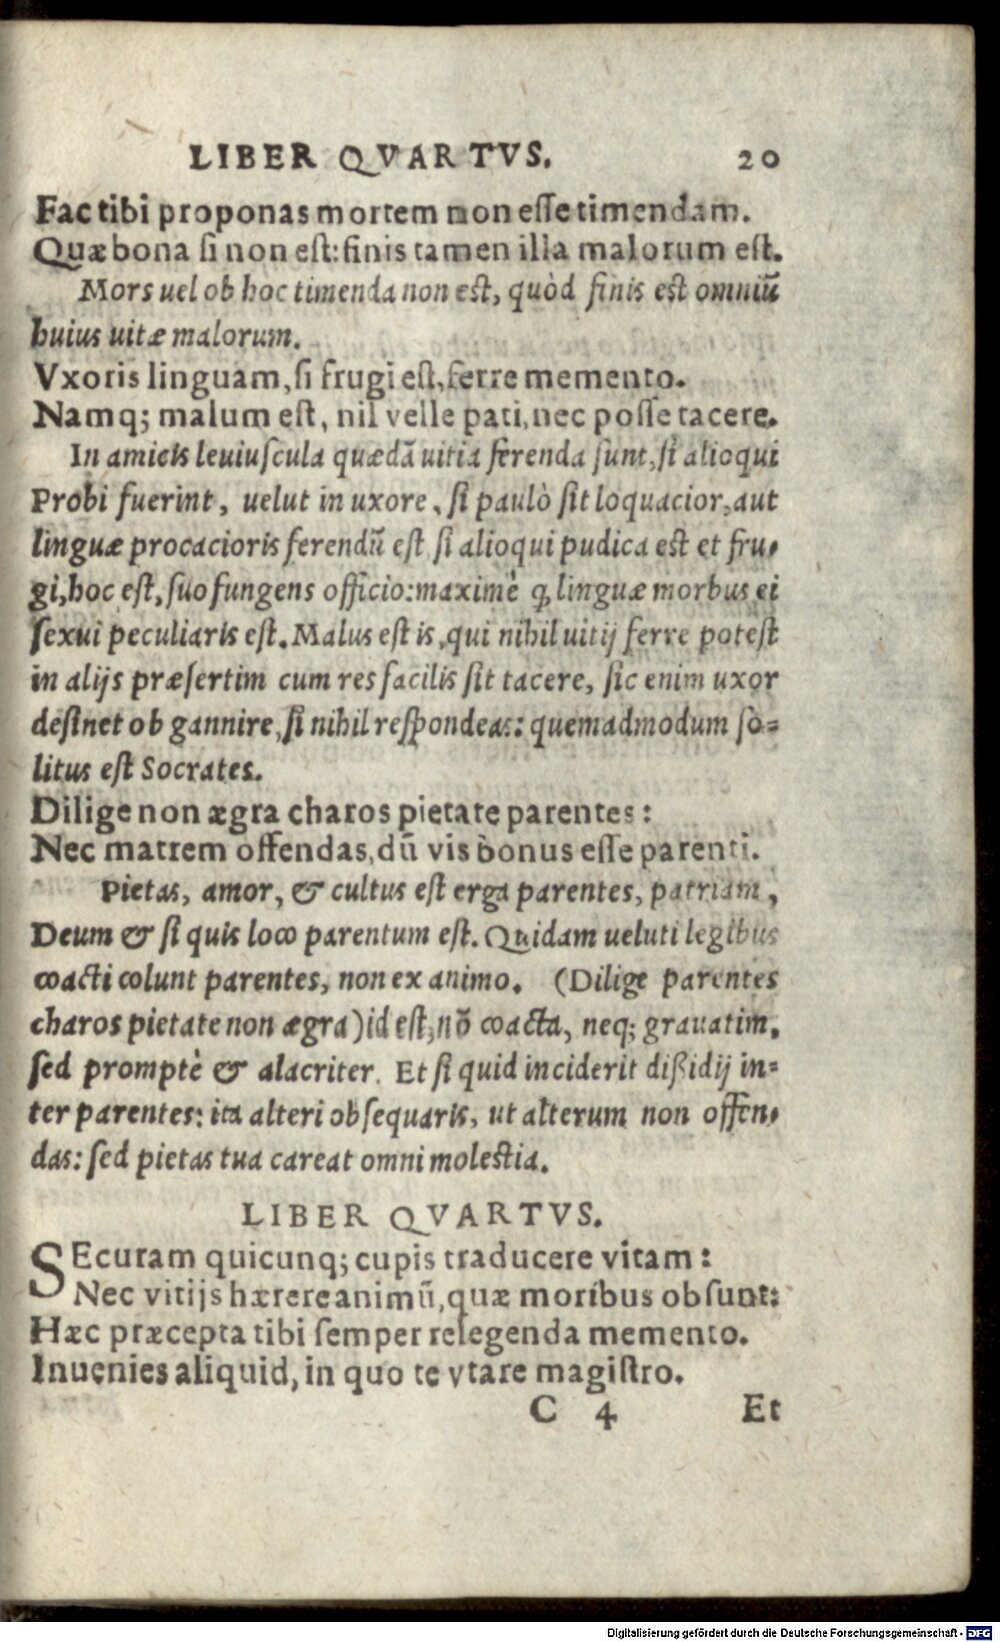 LIBER QVARTVS. 20
Fac tibi proponas mortem non esse timendam.
Quæ bona si non est: finis tamen illa malorum est.
Mors uel ob hoc timenda non est, quòd finis est omniũ
huius uitæ malorum.
Vxoris linguam, si frugi est, ferre memento.
Namq; malum est, nil velle pati, nec posse tacere.
In amicis leuiuscula quædã uitia ferenda sunt, si alioqui
Probi fuerint, uelut in uxore, si paulò sit loquacior, aut
linguæ procacioris ferendũ est si alioqui pudica est et fru-
gi, hoc est, suo fungens officio: maximè ꝙ linguæ morbus ei
sexui peculiaris est. Malus est is, qui nihil uitij ferre potest
in alijs præsertim cum res facilis sit tacere, sic enim uxor
desinet ob gannire, si nihil respondeas: quemadmodum so-
litus est Socrates.
Dilige non ægra charos pietate parentes:
Nec matrem offendas, dũ vis bonus esse parenti.
Pietas, amor, & cultus est erga parentes, patriam,
Deum & si quis loco parentum est. Quidam ueluti legibus
coacti colunt parentes, non ex animo. (Dilige parentes
charos pietate non ægra) id est, nõ coacta, neq; grauatim,
sed promptè & alacriter. Et si quid inciderit dißidij in-
ter parentes: ita alteri obsequaris, ut alterum non offen-
das: sed pietas tua careat omni molestia.
LIBER QVARTVS.
SEcuram quicunq; cupis traducere vitam:
Nec vitijs hærere animũ, quæ moribus obsunt:
Hæc præcepta tibi semper relegenda memento.
Inuenies aliquid, in quo te vtare magistro.
C 4 Et
Digitalisierung gefördert durch die Deutsche Forschungsgemeinschaft - DFG